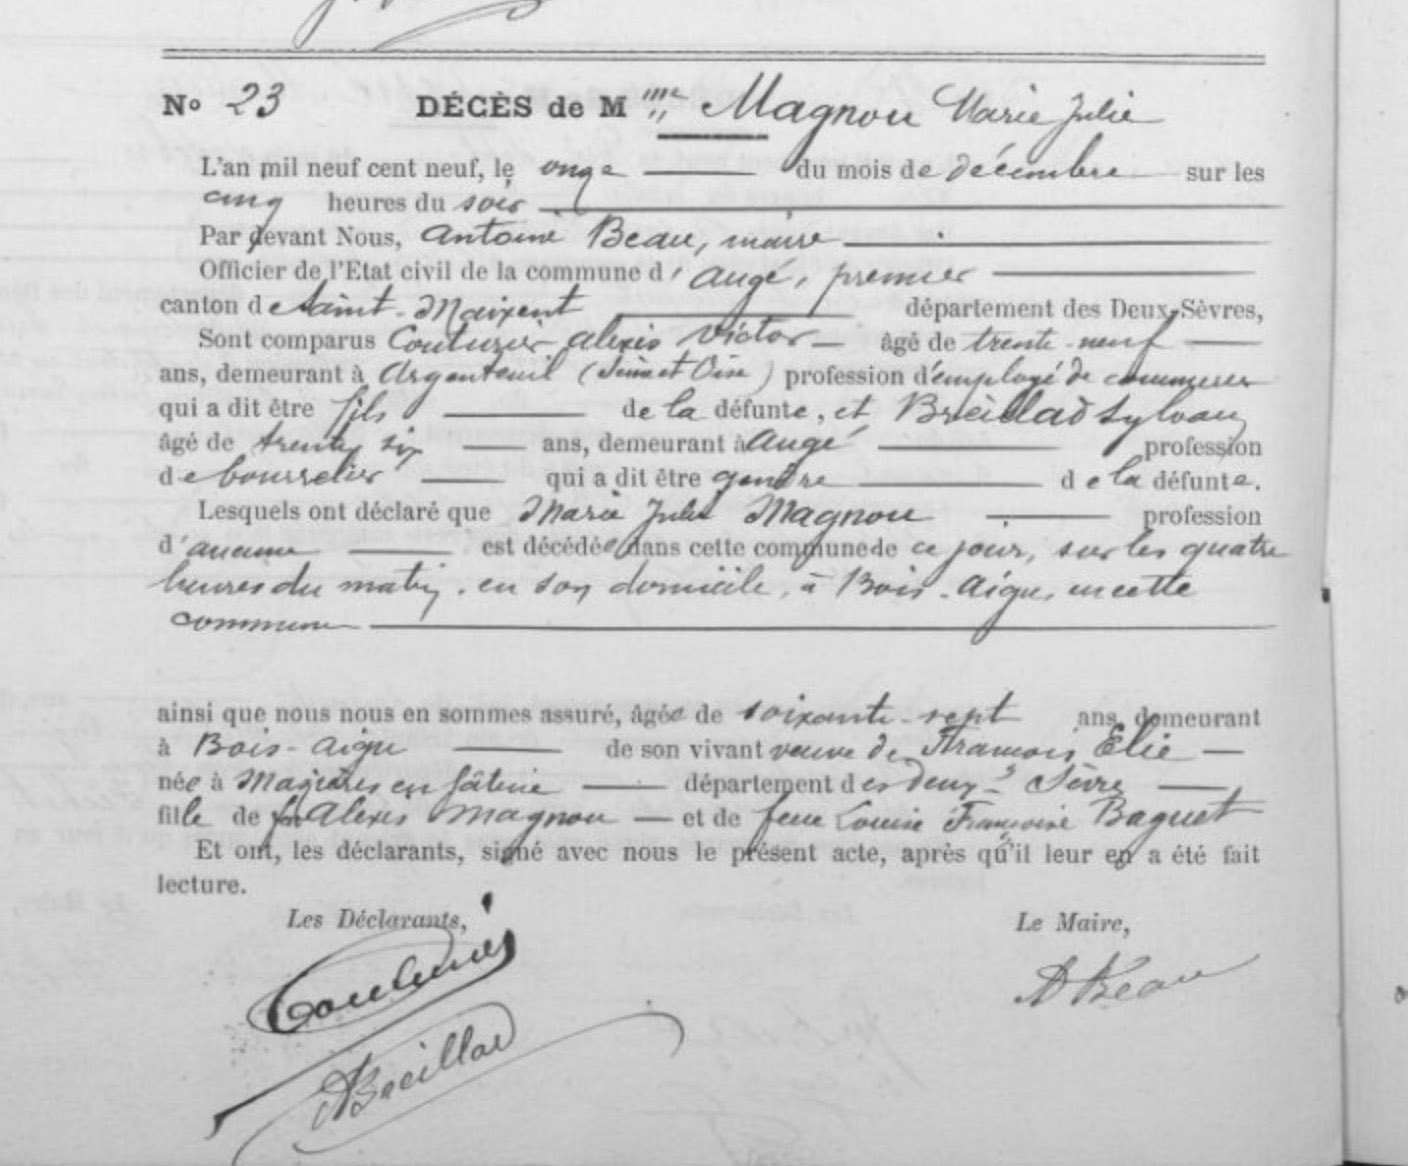 No 23 DÉCÈS de Mme Magnou Marie Julie
L'an mil neuf cent neuf, le onze du mois de décembre sur les
cinq heures du soir
Par devant Nous, Antoine Beau, maire
Officier de l'Etat civil de la commune d'Augé, premier
canton de Saint-Maixent département des Deux-Sèvres,
Sont comparus Couturier Alexis Victor âgé de trente-neuf
ans, demeurant à Argenteuil (Seine et Oise) profession d'employé de commerce
qui a dit être fils de la défunte, et Breillad Sylvain
âgé de trente six ans, demeurant à Augé profession
de bourrelier qui a dit être gendre de la défunte.
Lesquels ont déclaré que Marie Julie Magnou profession
d'aucune est décédée dans cette commune de ce jour, sur les quatre
heures du matin, en son domicile, à Bois-Aigu, en cette
commune
ainsi que nous nous en sommes assuré, âgée de soixante-sept ans, demeurant
à Bois-Aigu de son vivant veuve de François Elie
née à Mazières en Gâtine département des Deux-Sèvre
fille de feu Alexis Magnou et de feue Louise Françoise Baguet
Et ont, les déclarants, signé avec nous le présent acte, après qu'il leur en a été fait
lecture.
Les Déclarants, Le Maire,
Couturier
A Beau
Breillad